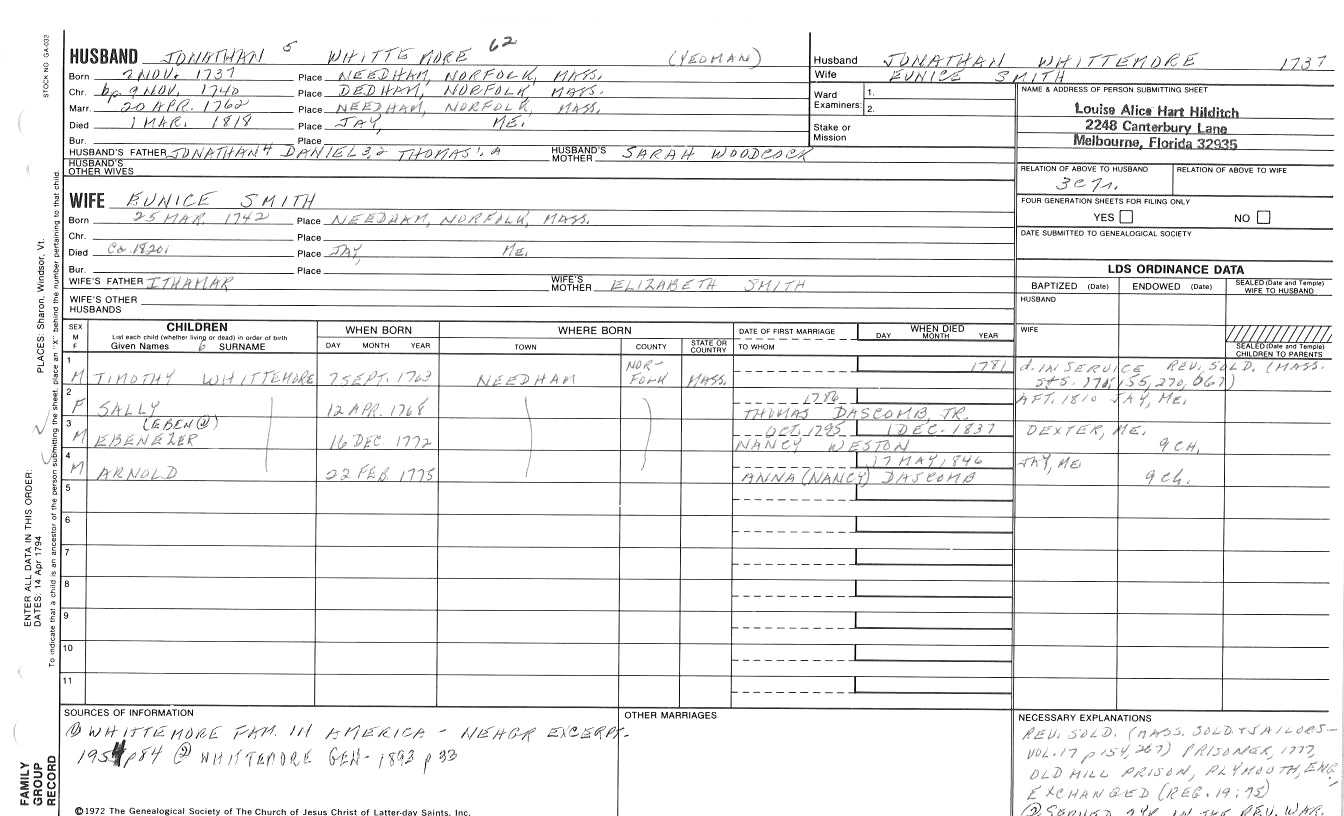 STOCK NO. GA-033
HUSBAND JONATHAN 5 WHITTEMORE 62 (YEOMAN)
Born 2 NOV. 1737 Place NEEDHAM, NORFOLK, MASS.
Chr. bp. 9 NOV. 1740 Place DEDHAM, NORFOLK MASS.
Marr. 20 APR. 1762 Place NEEDHAM, NORFOLK, MASS.
Died 1 MAR. 1818 Place JAY, ME.
Bur. Place
HUSBAND'S FATHER JONATHAN 4 DANIEL 3,2 THOMAS 1. A HUSBAND'S MOTHER SARAH WOODCOCK
HUSBAND'S OTHER WIVES
WIFE EUNICE SMITH
Born 25 MAR. 1742 Place NEEDHAM, NORFOLK, MASS.
Chr. Place
Died Ca. 1820 Place JAY, ME.
Bur. Place
WIFE'S FATHER ITHAMAR WIFE'S MOTHER ELIZABETH SMITH
WIFE'S OTHER HUSBANDS
Husband JONATHAN WHITTEMORE 1737
Wife EUNICE SMITH
Ward Examiners: 1. 2.
Stake or Mission
NAME & ADDRESS OF PERSON SUBMITTING SHEET
Louise Alice Hart Hilditch
2248 Canterbury Lane
Melbourne, Florida 32935
RELATION OF ABOVE TO HUSBAND RELATION OF ABOVE TO WIFE
3C7r.
FOUR GENERATION SHEETS FOR FILING ONLY
YES NO
DATE SUBMITTED TO GENEALOGICAL SOCIETY
LDS ORDINANCE DATA
BAPTIZED (Date) ENDOWED (Date) SEALED (Date and Temple) WIFE TO HUSBAND
HUSBAND
WIFE
SEALED (Date and Temple) CHILDREN TO PARENTS
SEX M F CHILDREN WHEN BORN WHERE BORN DATE OF FIRST MARRIAGE WHEN DIED
List each child (whether living or dead) in order of birth
Given Names 6 SURNAME DAY MONTH YEAR TOWN COUNTY STATE OR COUNTRY TO WHOM DAY MONTH YEAR
1 M TIMOTHY WHITTEMORE 7 SEPT. 1763 NEEDHAM NOR-FOLK MASS. 1781 d. IN SERVICE REV. SOLD. (MASS.
S+S. 17: 155, 270, 067)
2 F SALLY 12 APR. 1768 1786 THOMAS DASCOMB, JR. AFT. 1810 JAY, ME.
3 M (EBEN②) EBENEZER 16 DEC 1772 OCT. 1795 1 DEC. 1837 NANCY WESTON DEXTER, ME. 9 CH.
4 M ARNOLD 22 FEB. 1775 17 MAY, 1846 ANNA (NANCY) DASCOMB JAY, ME 9 Ch.
5
6
7
8
9
10
11
SOURCES OF INFORMATION
① WHITTEMORE FAM. IN AMERICA - NEHGR EXCERPT.
1954 p84 ② WHITTEMORE GEN- 1893 p 33
OTHER MARRIAGES
NECESSARY EXPLANATIONS
REV. SOLD. (MASS. SOLD & SAILORS-
VOL. 17 p 154, 267) PRISONER, 1777,
OLD MILL PRISON, PLYMOUTH, ENG.,
EXCHANGED (REG. 19:75)
② SERVED IN THE REV. WAR.
©1972 The Genealogical Society of The Church of Jesus Christ of Latter-day Saints, Inc.
FAMILY GROUP RECORD
ENTER ALL DATA IN THIS ORDER:
DATES: 14 Apr 1794
PLACES: Sharon, Windsor, Vt.
To indicate that a child is an ancestor of the person submitting the sheet, place an "X" behind the number pertaining to that child.